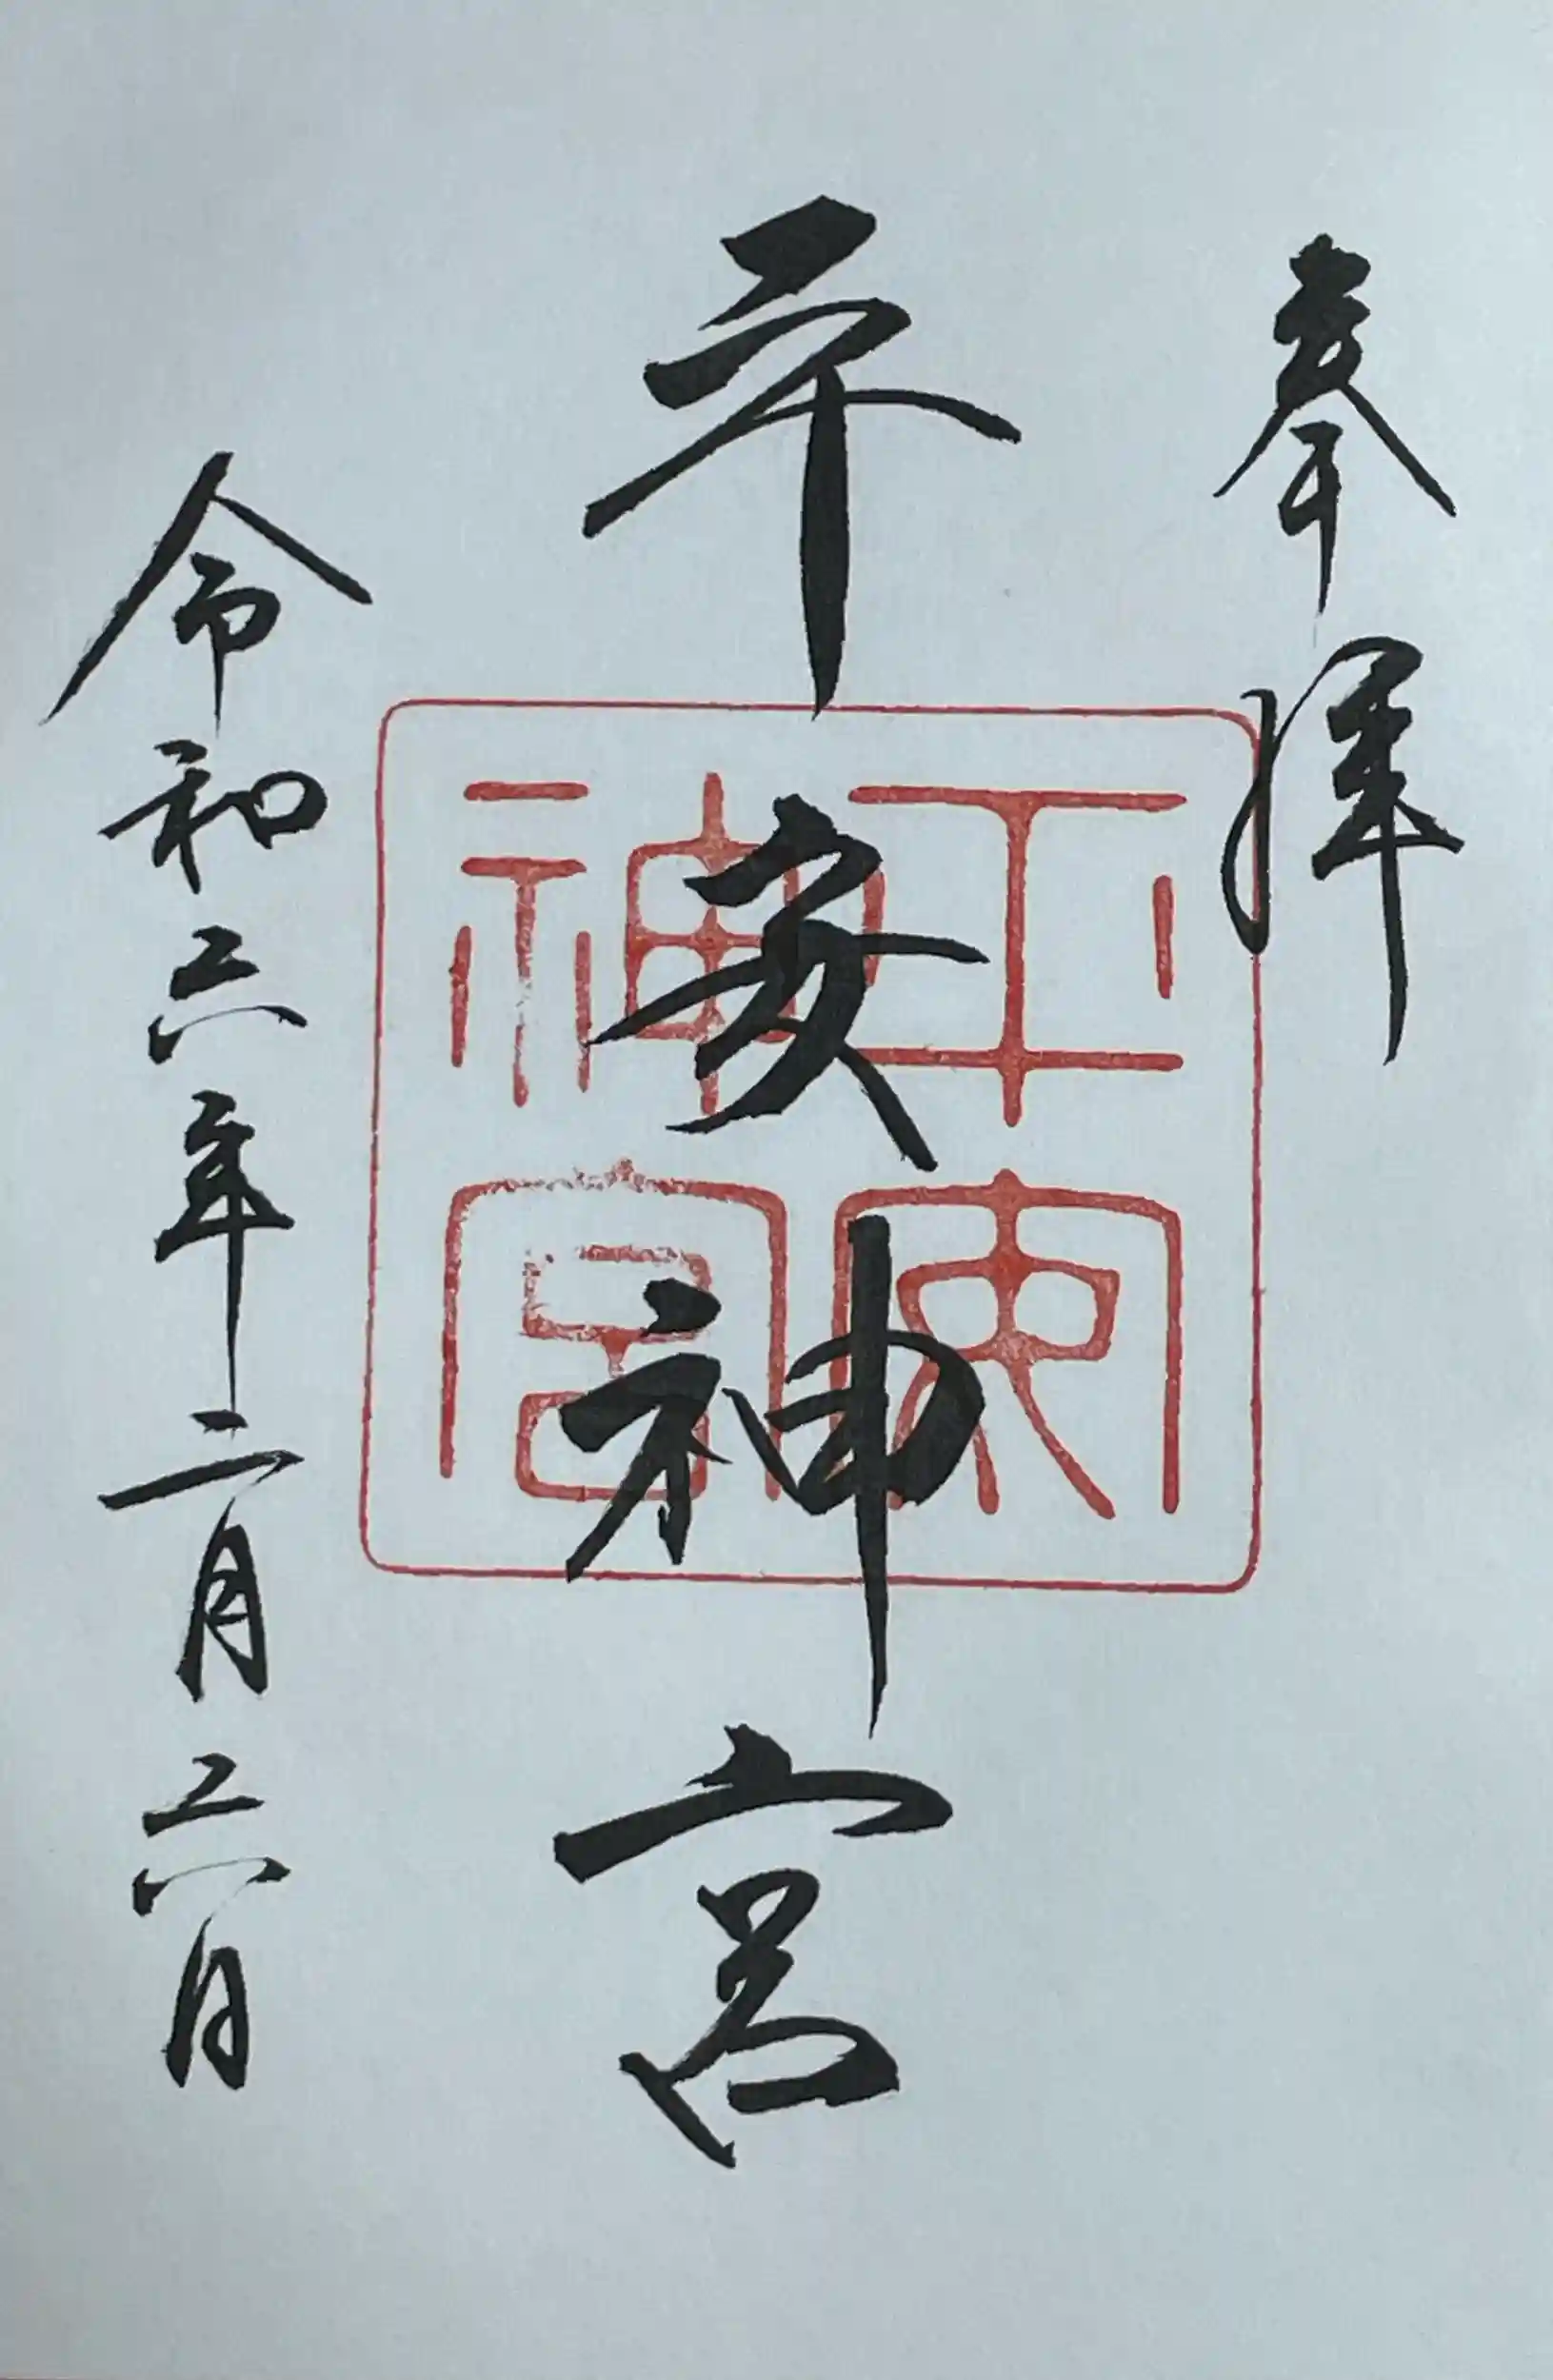 奉拝
平安神宮
令和六年二月六日
平安
神宮